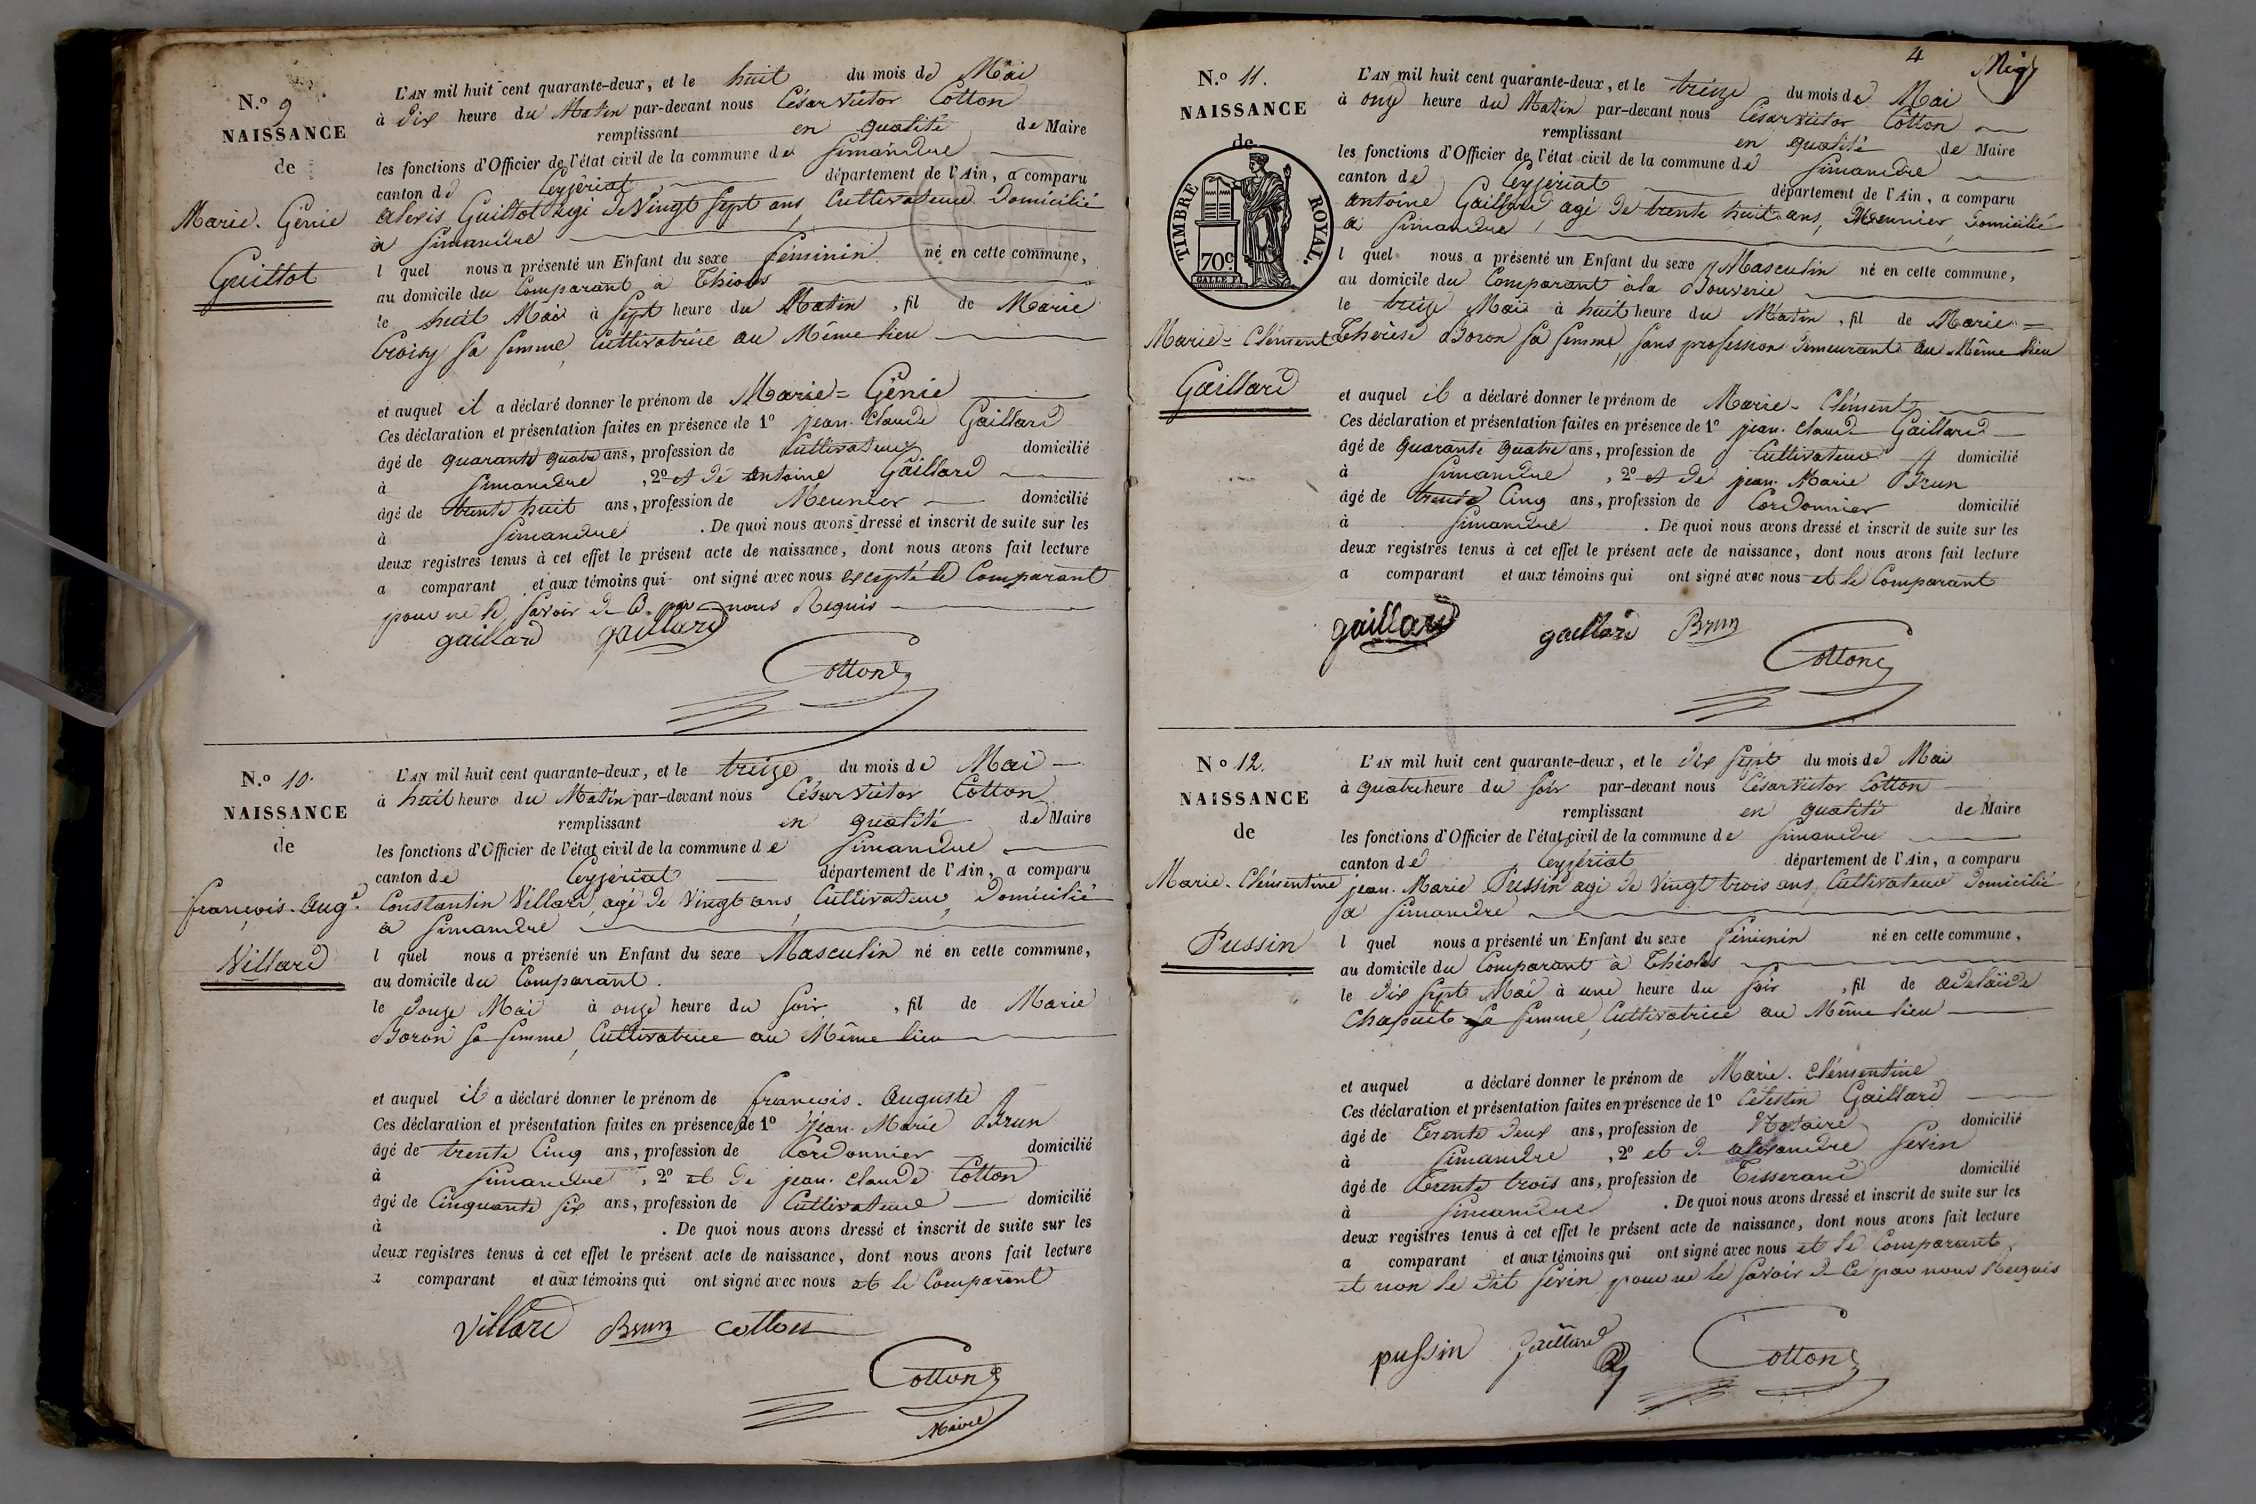 N.º 9
NAISSANCE
de
Marie. Génie
Guillot
L'AN mil huit cent quarante-deux, et le huit du mois de Mai
à dix heure du Matin par-devant nous César Victor Cotton
remplissant en qualité de Maire
les fonctions d'Officier de l'état civil de la commune de Simandre
canton de Ceyzériat département de l'Ain, a comparu
alexis Guillot agé de Vingt sept ans, Cultivateur Domicilié
à Simandre
l quel nous a présenté un Enfant du sexe féminin né en cette commune,
au domicile du Comparant à Thioles
le huit Mai à sept heure du Matin, fil de Marie
Croisy sa femme, Cultivatrice au Même lieu
et auquel il a déclaré donner le prénom de Marie=Génie
Ces déclaration et présentation faites en présence de 1º jean. Claude Gaillard
âgé de quarante quatre ans, profession de Cultivateur domicilié
à Simandre, 2º et de antoine Gaillard
âgé de trente huit ans, profession de Meunier domicilié
à Simandre. De quoi nous avons dressé et inscrit de suite sur les
deux registres tenus à cet effet le présent acte de naissance, dont nous avons fait lecture
a comparant et aux témoins qui ont signé avec nous excepté le Comparant
pour ne le savoir de C. par nous Requis
gaillard gaillard
Cotton
N.º 10.
NAISSANCE
de
françois. aug.te
Villard
L'AN mil huit cent quarante-deux, et le treize du mois de Mai
à huit heure du Matin par-devant nous César Victor Cotton
remplissant en qualité de Maire
les fonctions d'Officier de l'état civil de la commune de Simandre
canton de Ceyzériat département de l'Ain, a comparu
Constantin Villard, agé de Vingt ans, Cultivateur, Domicilié
à Simandre
l quel nous a présenté un Enfant du sexe Masculin né en cette commune,
au domicile du Comparant.
le Douze Mai à onze heure du soir, fil de Marie
Boron sa femme, Cultivatrice au Même lieu
et auquel il a déclaré donner le prénom de françois. auguste
Ces déclaration et présentation faites en présence de 1º jean. Marie Brun
âgé de trente Cinq ans, profession de Cordonnier domicilié
à Simandre, 2º et de jean. claude Cotton
âgé de Cinquante six ans, profession de Cultivateur domicilié
à . De quoi nous avons dressé et inscrit de suite sur les
deux registres tenus à cet effet le présent acte de naissance, dont nous avons fait lecture
a comparant et aux témoins qui ont signé avec nous et le Comparant
Villard Brun cotton
Cotton
Maire
4
N.º 11.
NAISSANCE
de
TIMBRE ROYAL.
70c
Marie=Clément
Gaillard
L'AN mil huit cent quarante-deux, et le treize du mois de Mai
à onze heure du Matin par-devant nous César Victor Cotton
remplissant en qualité de Maire
les fonctions d'Officier de l'état civil de la commune de Simandre
canton de Ceyzériat département de l'Ain, a comparu
antoine Gaillard agé de trente huit ans, Meunier, Domicilié
à Simandre,
l quel nous a présenté un Enfant du sexe Masculin né en cette commune,
au domicile du Comparant à la Bouverie
le treize Mai à huit heure du Matin, fil de Marie=
Thérèse Boron sa femme, sans profession demeurant au Même lieu
et auquel il a déclaré donner le prénom de Marie. Clément
Ces déclaration et présentation faites en présence de 1º jean. claude Gaillard
âgé de quarante quatre ans, profession de Cultivateur domicilié
à Simandre, 2º et de jean. Marie Brun
âgé de trente Cinq ans, profession de Cordonnier domicilié
à Simandre. De quoi nous avons dressé et inscrit de suite sur les
deux registres tenus à cet effet le présent acte de naissance, dont nous avons fait lecture
a comparant et aux témoins qui ont signé avec nous et le Comparant
gaillard gaillard Brun
Cotton
Nº 12.
NAISSANCE
de
Marie. Clémentine
Pussin
L'AN mil huit cent quarante-deux, et le dix sept du mois de Mai
à quatre heure du soir par-devant nous César Victor Cotton
remplissant en qualité de Maire
les fonctions d'Officier de l'état civil de la commune de Simandre
canton de Ceyzériat département de l'Ain, a comparu
jean. Marie Pussin agé de Vingt trois ans, Cultivateur Domicilié
à Simandre
l quel nous a présenté un Enfant du sexe féminin né en cette commune,
au domicile du Comparant à Thioles
le dix sept Mai à une heure du soir, fil de adelaïde
Chapuit sa femme, Cultivatrice au Même lieu
et auquel a déclaré donner le prénom de Marie. Clémentine
Ces déclaration et présentation faites en présence de 1º Célestin Gaillard
âgé de trente deux ans, profession de Notaire domicilié
à Simandre, 2º et de alexandre Sevin
âgé de trente trois ans, profession de Tisserand domicilié
à Simandre. De quoi nous avons dressé et inscrit de suite sur les
deux registres tenus à cet effet le présent acte de naissance, dont nous avons fait lecture
a comparant et aux témoins qui ont signé avec nous et le Comparant
et non le dit Sevin pour ne le savoir de Ce par nous Requis
pussin Gaillard
Cotton